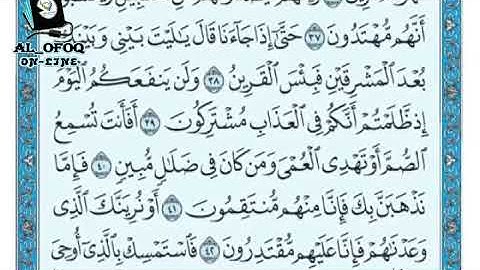 AL_OFOQ
ON-LINE
أَنَّهُم مُّهْتَدُونَ ٣٧ حَتَّىٰٓ إِذَا جَآءَنَا قَالَ يَٰلَيْتَ بَيْنِى وَبَيْنَكَ
بُعْدَ ٱلْمَشْرِقَيْنِ فَبِئْسَ ٱلْقَرِينُ ٣٨ وَلَن يَنفَعَكُمُ ٱلْيَوْمَ
إِذ ظَّلَمْتُمْ أَنَّكُمْ فِى ٱلْعَذَابِ مُشْتَرِكُونَ ٣٩ أَفَأَنتَ تُسْمِعُ
ٱلصُّمَّ أَوْ تَهْدِى ٱلْعُمْىَ وَمَن كَانَ فِى ضَلَٰلٍ مُّبِينٍ ٤٠ فَإِمَّا
نَذْهَبَنَّ بِكَ فَإِنَّا مِنْهُم مُّنتَقِمُونَ ٤١ أَوْ نُرِيَنَّكَ ٱلَّذِى
وَعَدْنَٰهُمْ فَإِنَّا عَلَيْهِم مُّقْتَدِرُونَ ٤٢ فَٱسْتَمْسِكْ بِٱلَّذِىٓ أُوحِىَ